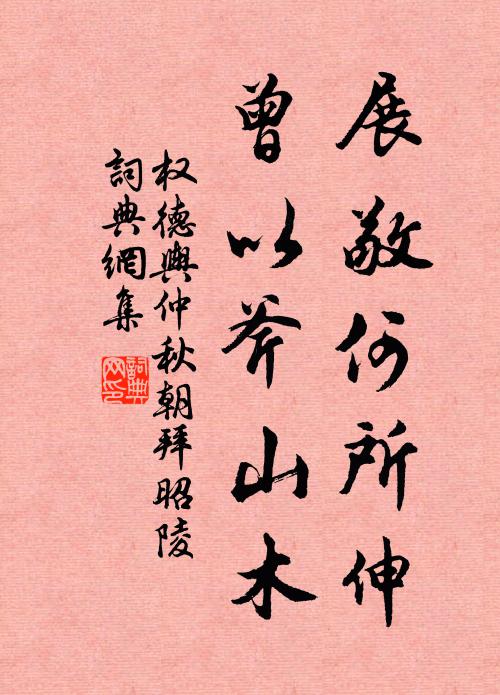 展敬何所伸
曾以斧山木
权德輿仲秋朝拜昭陵
詞典網集
詞典網印